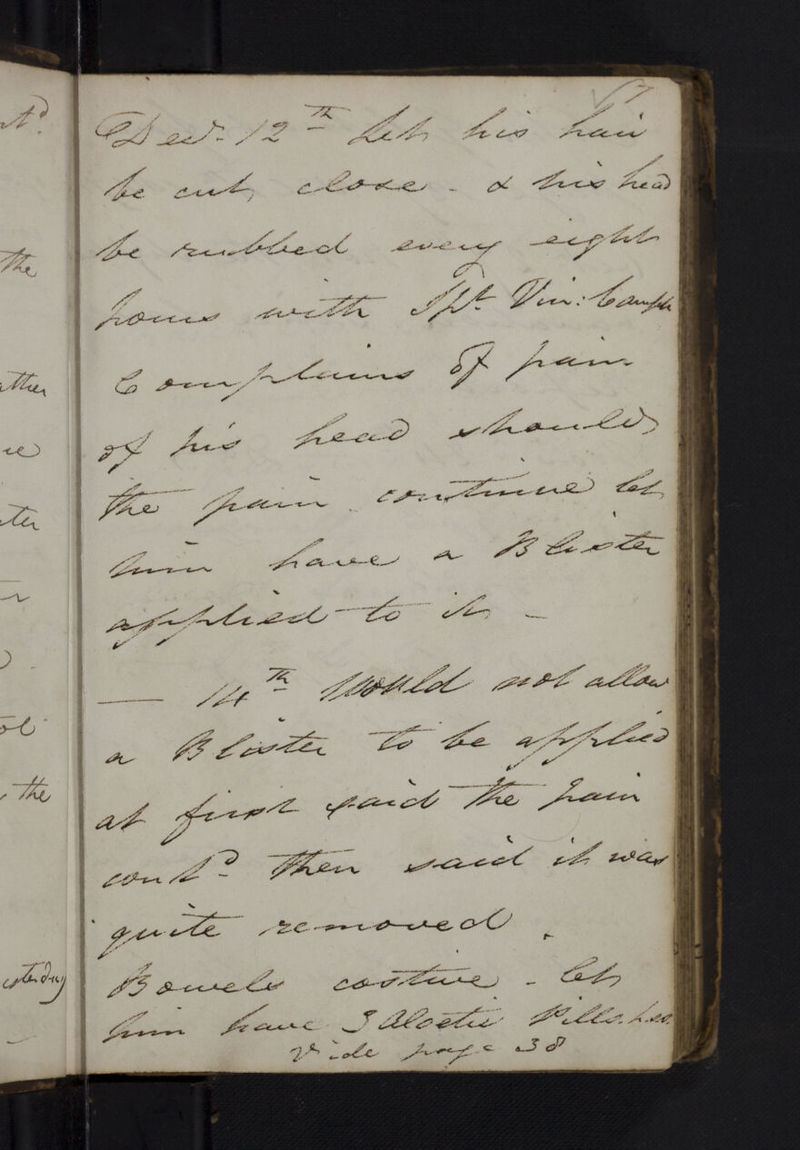 17
Decr. 12th Let his hair
be cut close - & his head
be rubbed every eight
hours with Spt. Vin: Camph
Complains of pain
of his head should
the pain continue let
him have a Blister
applied to it -
— 14th Would not allow
a Blister to be applied
at first said the pain
contd. then said it was
quite removed.
Bowels costive - let
him have 3 Aloetic Pills
Vide page 38
the
the